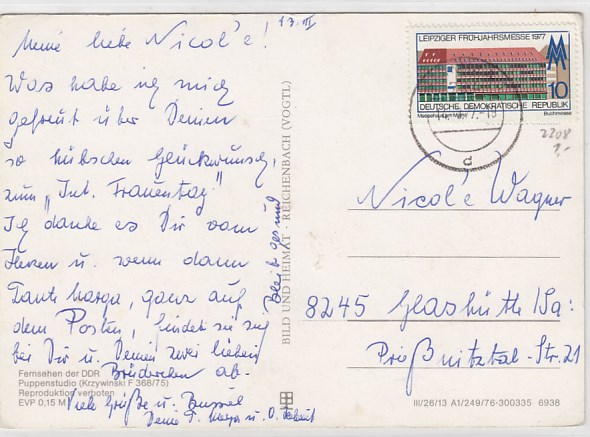 13. III
Meine liebe Nicol'e!
Was habe ich mich
gefreut über Deinen
so hübschen Glückwunsch,
zum „Int. Frauentag"
Ich danke es Dir vom
Herzen u. wenn dann
Tante Marga, ganz auf
dem Posten, findet sie sich
bei Dir u. Deinen zwei lieben
Brüderchen ab.
Viele Grüße u. Bussel
Deine T. Marga u. O.
Bleibt gesund
Fernsehen der DDR
Puppenstudio (Krzywinski F 368/75)
Reproduktion verboten
EVP 0,15 M
BILD UND HEIMAT · REICHENBACH (VOGTL)
LEIPZIGER FRÜHJAHRSMESSE 1977
10
DEUTSCHE DEMOKRATISCHE REPUBLIK
Buchmesse
d
2208
1,-
Nicol'e Wagner
8245 Glashütte/Sa:
Prießnitztal-Str. 21
III/26/13 A1/249/76-300335 6938